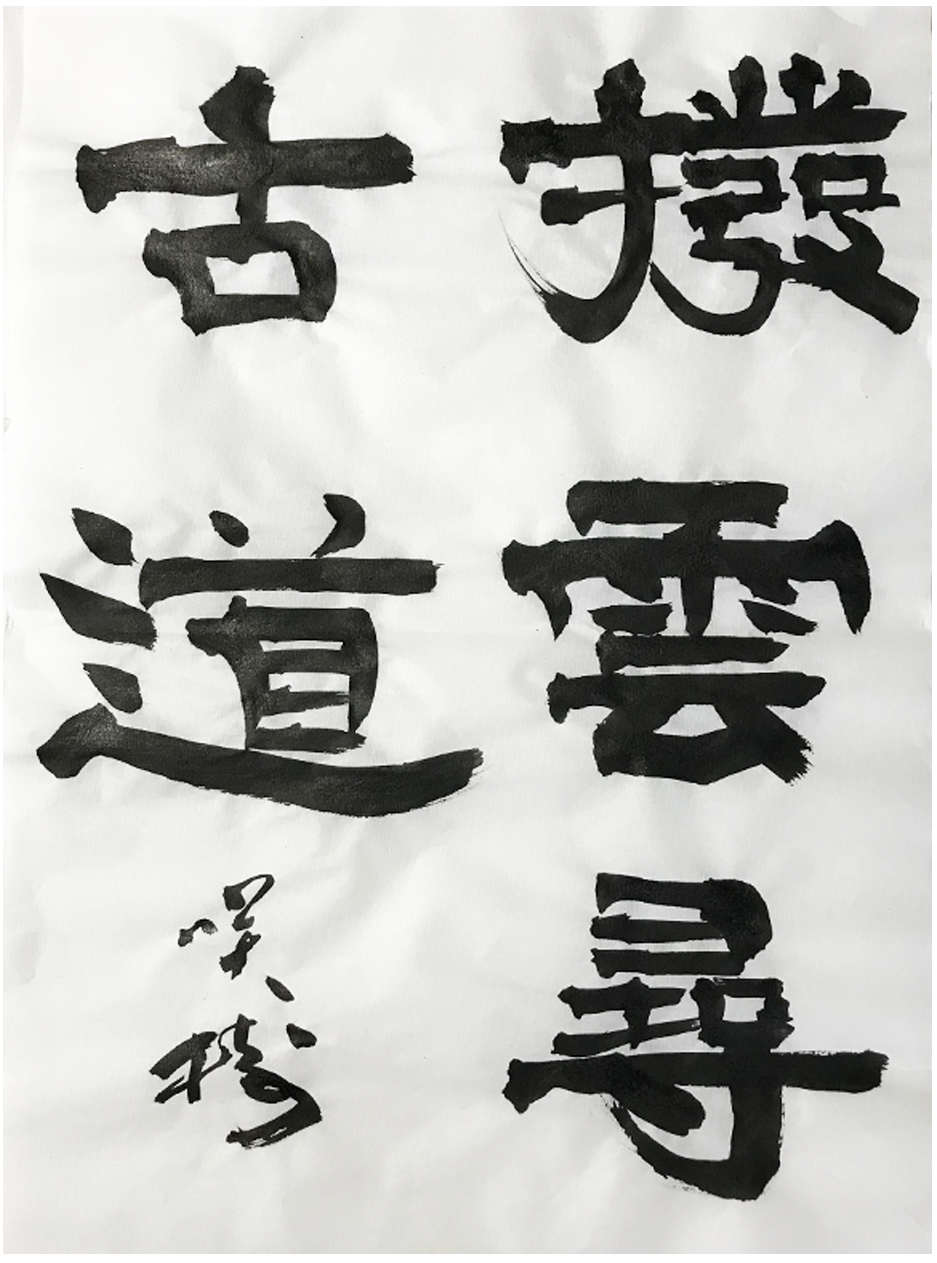 撥雲尋
古道